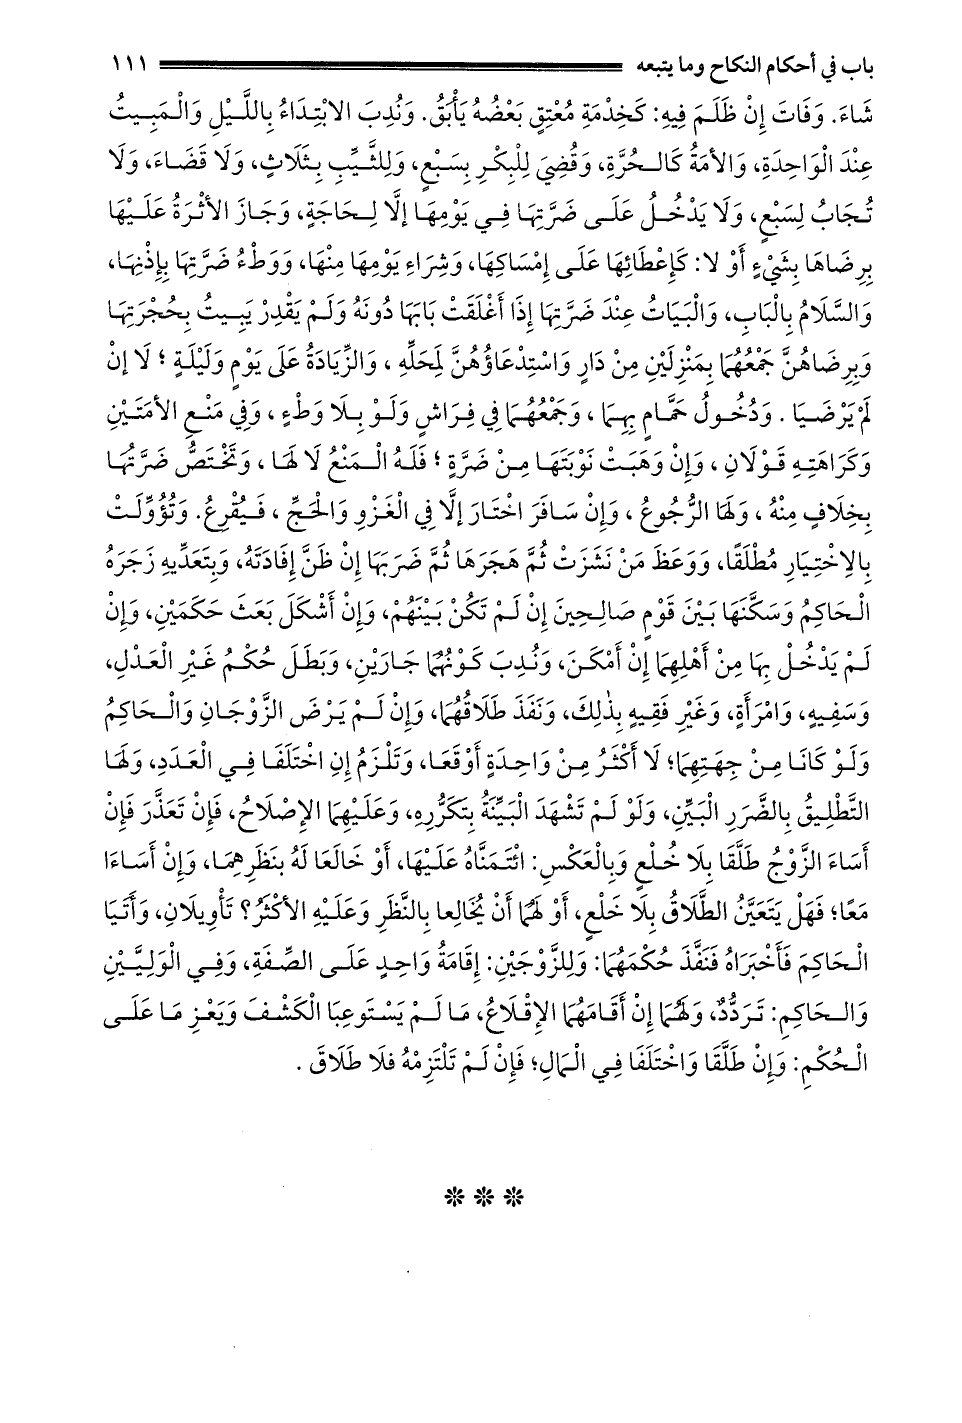 باب في أحكام النكاح وما يتبعه ١١١
شَاءَ. وَفَاتَ إِنْ ظَلَمَ فِيهِ: كَخِدْمَةِ مُعْتِقٍ بَعْضُهُ يَأْبَقُ. وَنُدِبَ الابْتِدَاءُ بِاللَّيْلِ وَالْمَبِيتُ
عِنْدَ الْوَاحِدَةِ، وَالأَمَةُ كَالحُرَّةِ، وَقُضِيَ لِلْبِكْرِ بِسَبْعٍ، وَلِلثَّيِّبِ بِثَلَاثٍ، وَلَا قَضَاءَ، وَلَا
تُجَابُ لِسَبْعٍ، وَلَا يَدْخُلُ عَلَى ضَرَّتِهَا فِي يَوْمِهَا إلَّا لِحَاجَةٍ، وَجَازَ الأَثَرَةُ عَلَيْهَا
بِرِضَاهَا بِشَيْءٍ أَوْ لا: كَإِعْطَائِهَا عَلَى إِمْسَاكِهَا، وَشِرَاءِ يَوْمِهَا مِنْهَا، وَوَطْءُ ضَرَّتِهَا بِإِذْنِهَا،
وَالسَّلَامُ بِالْبَابِ، وَالْبَيَاتُ عِنْدَ ضَرَّتِهَا إِذَا أَغْلَقَتْ بَابَهَا دُونَهُ وَلَمْ يَقْدِرْ يَبِيتُ بِحُجْرَتِهَا
وَبِرِضَاهُنَّ جَمْعُهُمَا بِمَنْزِلَيْنِ مِنْ دَارٍ وَاسْتِدْعَاؤُهُنَّ لِمَحَلِّهِ ، وَالزِّيَادَةُ عَلَى يَوْمٍ وَلَيْلَةٍ ؛ لَا إِنْ
لَمْ يَرْضَيَا . وَدُخُولُ حَمَّامٍ بِهِمَا ، وَجَمْعُهُمَا فِي فِرَاشٍ وَلَوْ بِلَا وَطْءٍ ، وَفِي مَنْعِ الأَمَتَيْنِ
وَكَرَاهَتِهِ قَوْلَانِ ، وَإِنْ وَهَبَتْ نَوْبَتَهَا مِنْ ضَرَّةٍ ؛ فَلَهُ الْمَنْعُ لَا لَهَا ، وَتَخْتَصُّ ضَرَّتُهَا
بِخِلَافٍ مِنْهُ ، وَلَهَا الرُّجُوعُ ، وَإِنْ سَافَرَ اخْتَارَ إلَّا فِي الْغَزْوِ وَالْحَجِّ ، فَيُقْرِعُ. وَتُؤُوِّلَتْ
بِالِاخْتِيَارِ مُطْلَقًا، وَوَعَظَ مَنْ نَشَزَتْ ثُمَّ هَجَرَهَا ثُمَّ ضَرَبَهَا إِنْ ظَنَّ إِفَادَتَهُ، وَبِتَعَدِّيهِ زَجَرَهُ
الْحَاكِمُ وَسَكَّنَهَا بَيْنَ قَوْمٍ صَالِحِينَ إِنْ لَمْ تَكُنْ بَيْنَهُمْ، وَإِنْ أَشْكَلَ بَعَثَ حَكَمَيْنِ، وَإِنْ
لَمْ يَدْخُلْ بِهَا مِنْ أَهْلِهِمَا إِنْ أَمْكَنَ، وَنُدِبَ كَوْنُهُمَا جَارَيْنِ، وَبَطَلَ حُكْمُ غَيْرِ الْعَدْلِ،
وَسَفِيهٍ، وَامْرَأَةٍ، وَغَيْرِ فَقِيهٍ بِذَٰلِكَ، وَنَفَذَ طَلَاقُهُمَا، وَإِنْ لَمْ يَرْضَ الزَّوْجَانِ وَالْحَاكِمُ
وَلَوْ كَانَا مِنْ جِهَتِهِمَا؛ لَا أَكْثَرُ مِنْ وَاحِدَةٍ أَوْقَعَا، وَتَلْزَمُ إِنِ اخْتَلَفَا فِي الْعَدَدِ، وَلَهَا
التَّطْلِيقُ بِالضَّرَرِ الْبَيِّنِ، وَلَوْ لَمْ تَشْهَدَ الْبَيِّنَةُ بِتَكَرُّرِهِ، وَعَلَيْهِمَا الإِصْلَاحُ، فَإِنْ تَعَذَّرَ فَإِنْ
أَسَاءَ الزَّوْجُ طَلَّقَا بِلَا خُلْعٍ وَبِالْعَكْسِ: ائْتَمَنَّاهُ عَلَيْهَا، أَوْ خَالَعَا لَهُ بِنَظَرِهِمَا، وَإِنْ أَسَاءَا
مَعًا؛ فَهَلْ يَتَعَيَّنُ الطَّلَاقُ بِلَا خَلْعٍ، أَوْ لَهُمَا أَنْ يُخَالِعا بِالنَّظَرِ وَعَلَيْهِ الأَكْثَرُ؟ تَأْوِيلَانِ، وَأَتَيَا
الْحَاكِمَ فَأَخْبَرَاهُ فَنَفَّذَ حُكْمَهُمَا: وَلِلزَّوْجَيْنِ: إِقَامَةُ وَاحِدٍ عَلَى الصِّفَةِ، وَفِي الْوَلِيَّيْنِ
وَالحَاكِمِ: تَرَدُّدٌ، وَلَهُمَا إِنْ أَقَامَهُمَا الإِقْلَاعُ، مَا لَمْ يَسْتَوعِبَا الْكَشْفَ وَيَعْزِمَا عَلَى
الْحُكْمِ: وَإِنْ طَلَّقَا وَاخْتَلَفَا فِي الْمَالِ؛ فَإِنْ لَمْ تَلْتَزِمْهُ فلَا طَلَاقَ .